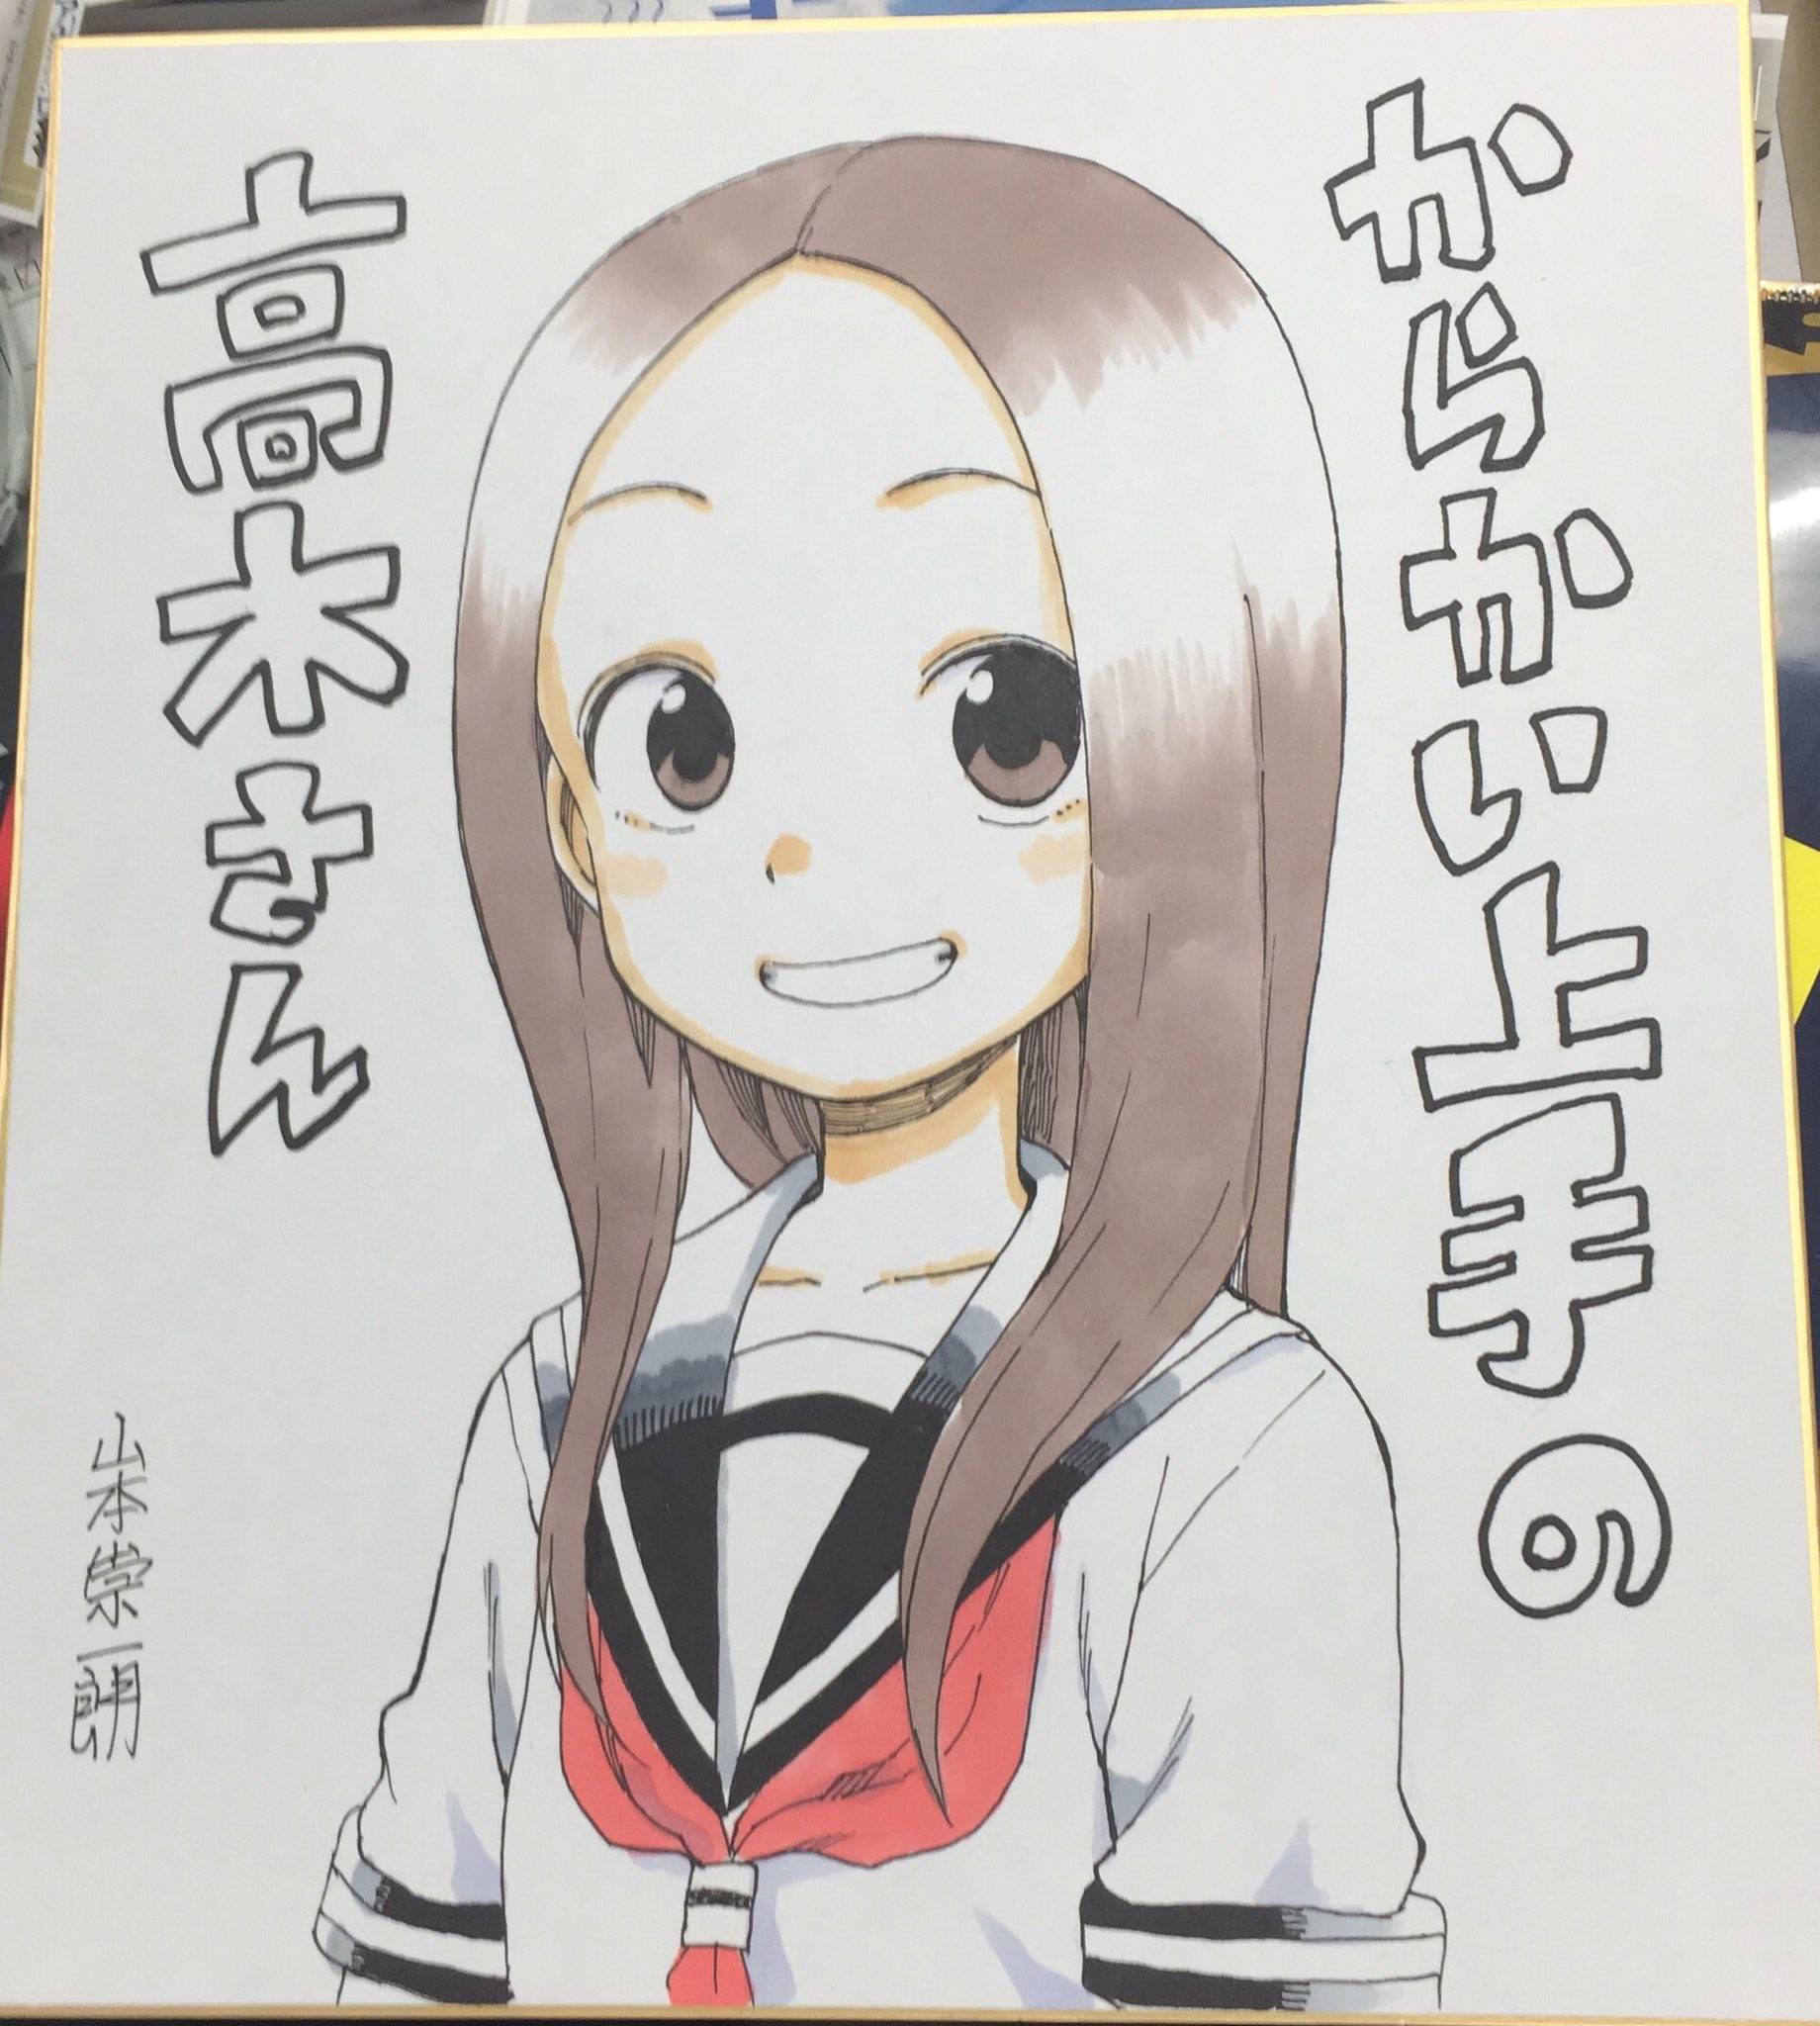 からかい上手の
高木さん
山本崇一朗